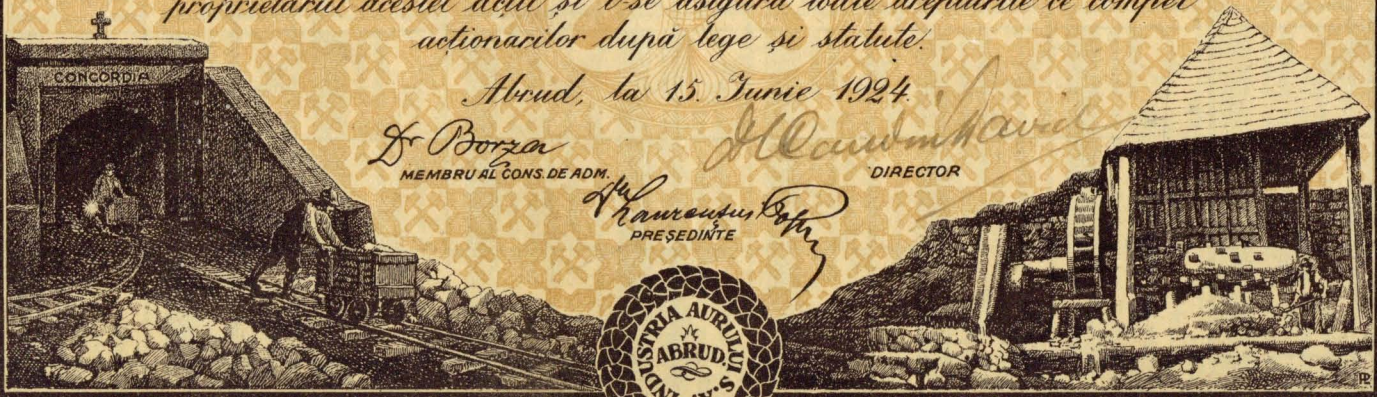 proprietarul acestei acții și i-se asigură toate drepturile ce compet
acționarilor după lege si statute.
CONCORDIA
Abrud, la 15. Iunie 1924.
Dr Borza
MEMBRU AL CONS. DE ADM.
DIRECTOR
PREȘEDINTE
INDUSTRIA AURULUI S. A.
ABRUD.